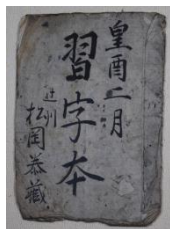 皇酉二月
習字本
松岡恭藏